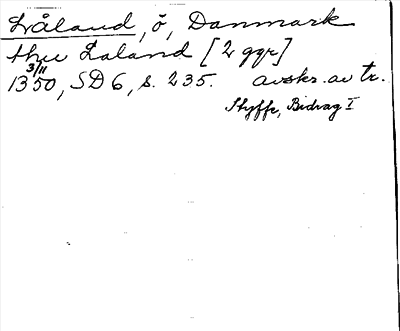 Låland, ö, Danmark
thw Laland [2 ggr]
3/11
1350, SD 6, s. 235. avskr. av tr.
Styffe, Bidrag I